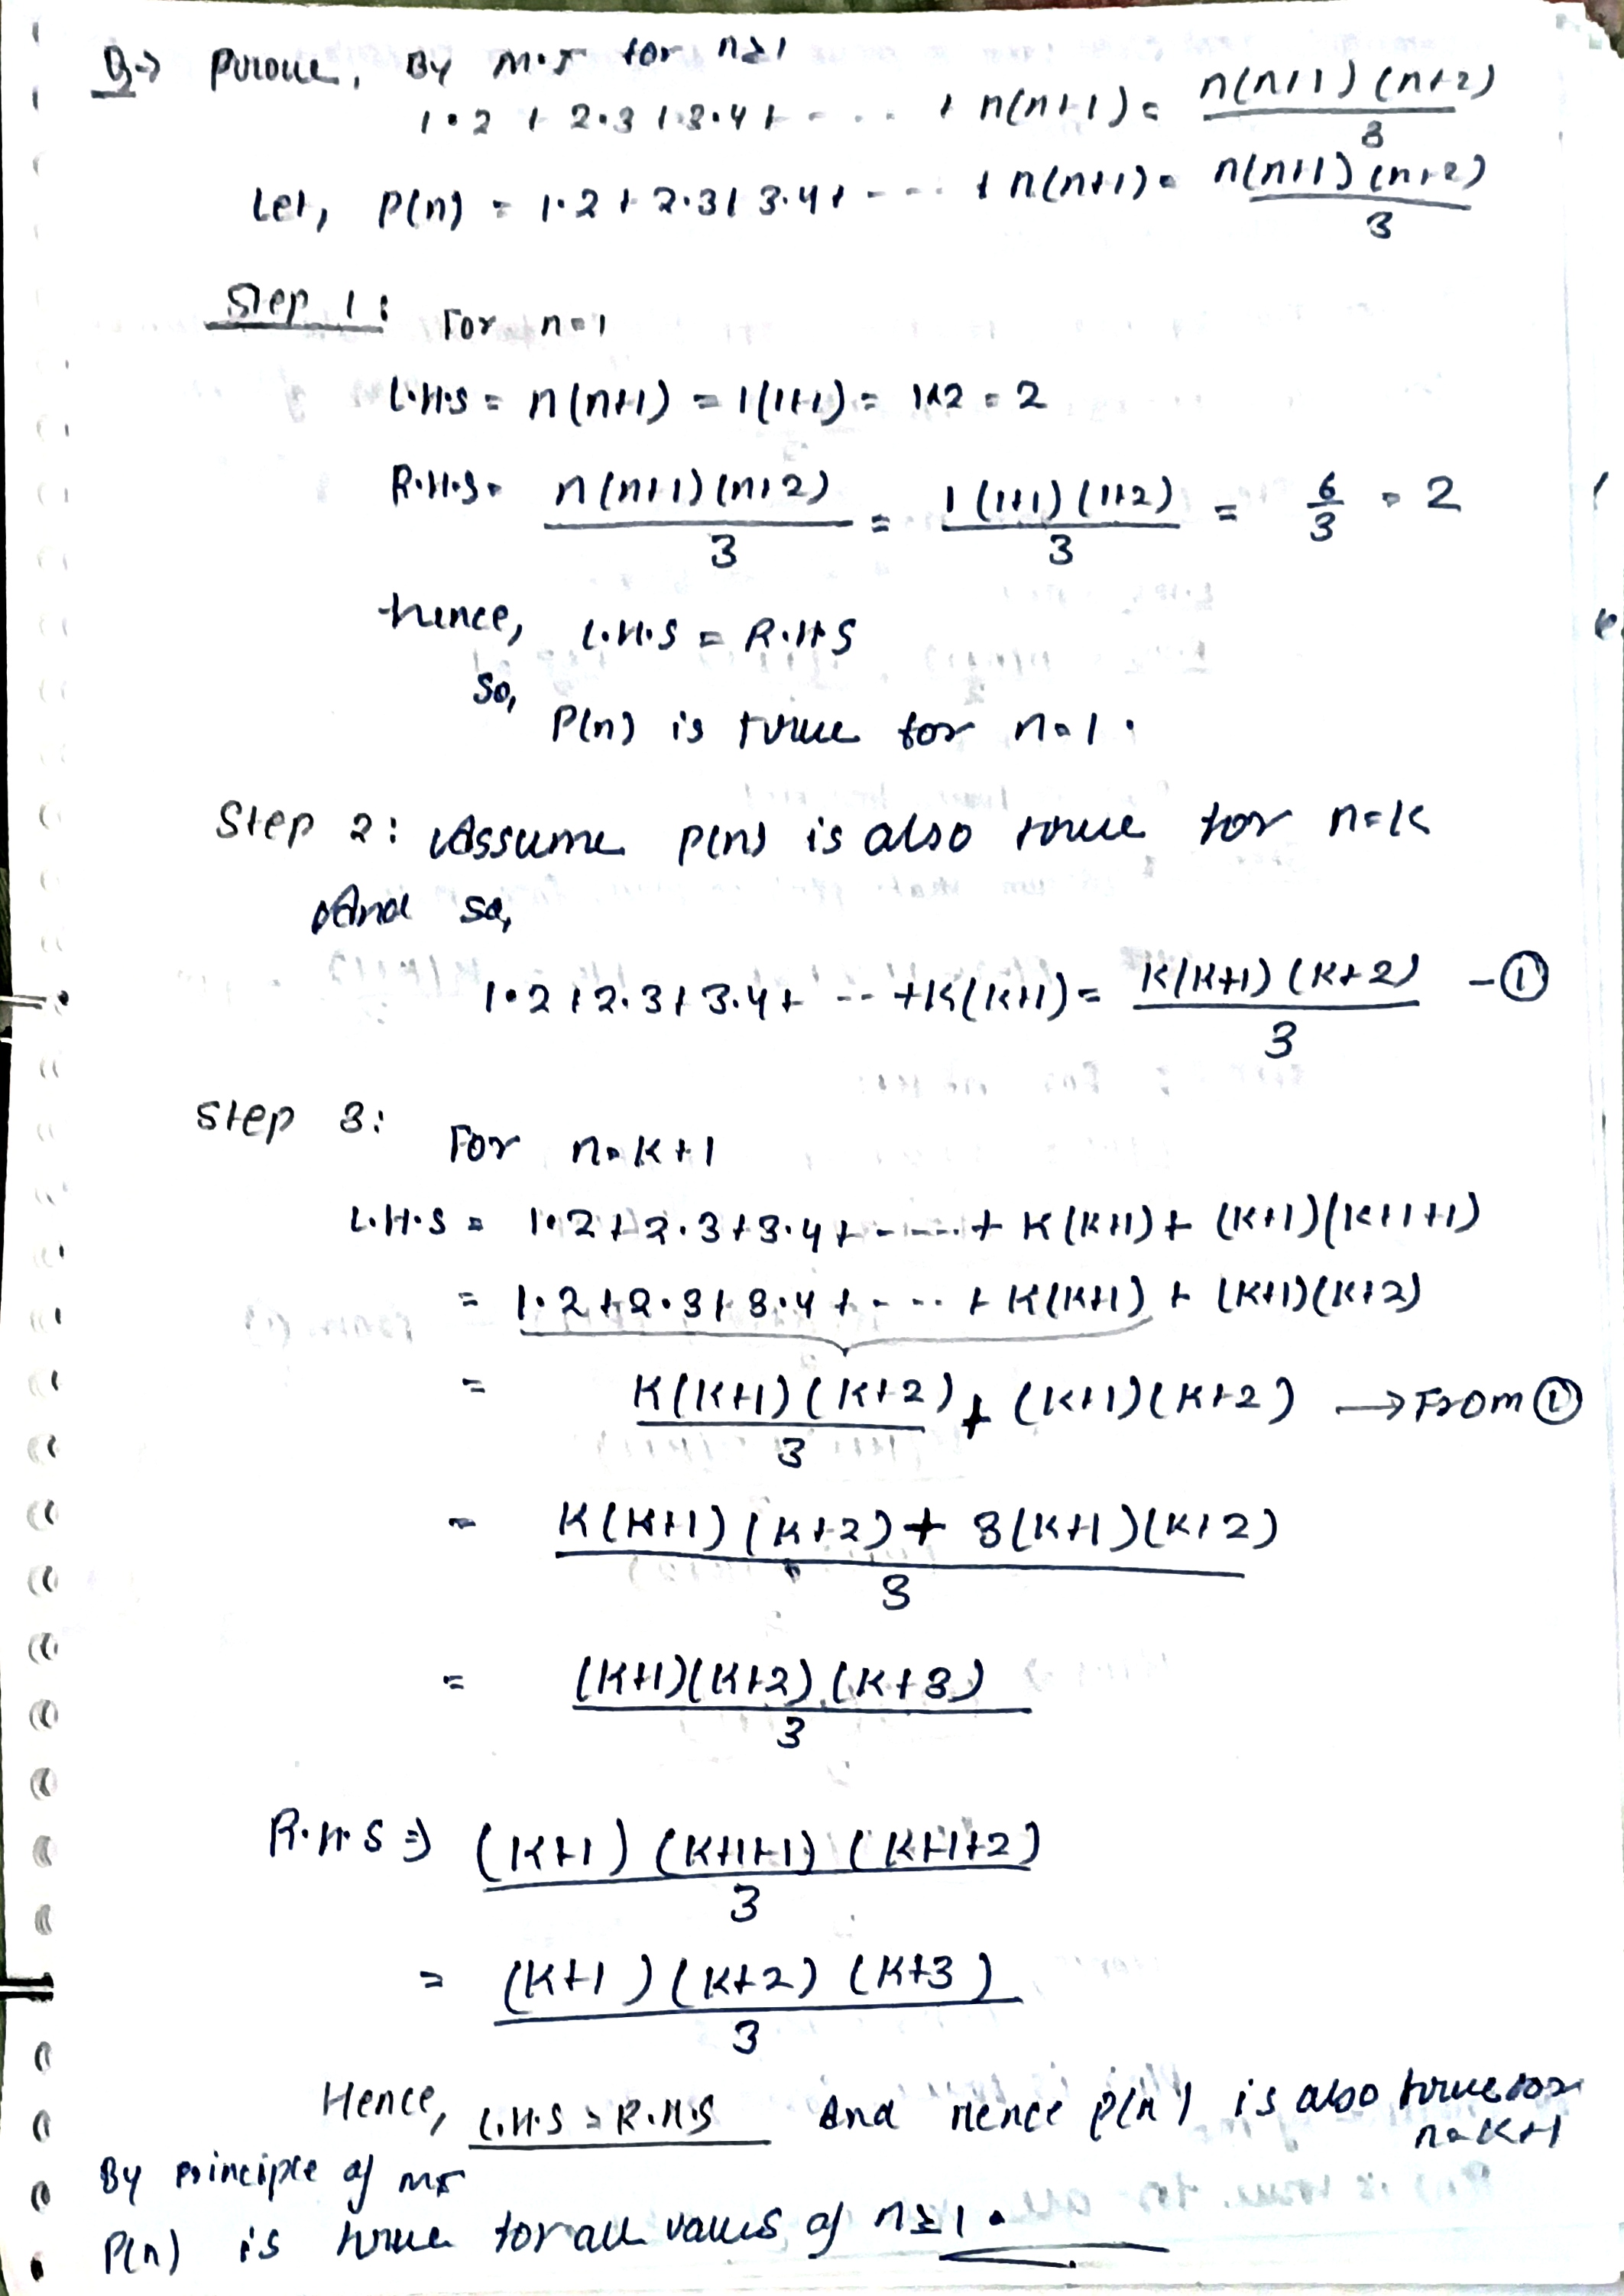 Q→ Prove, By M.I for n≥1
1·2 + 2·3 + 3·4 + - - .. + n(n+1) = n(n+1)(n+2)/3
Let, P(n) = 1·2 + 2·3 + 3·4 + - - -- + n(n+1) = n(n+1)(n+2)/3
Step 1: For n=1
L.H.S = n(n+1) = 1(1+1) = 1×2 = 2
R.H.S = n(n+1)(n+2)/3 = 1(1+1)(1+2)/3 = 6/3 = 2
hence, L.H.S = R.H.S
So,
P(n) is true for n=1.
Step 2: Assume P(n) is also true for n=k
And so,
1·2 + 2·3 + 3·4 + - -- + k(k+1) = k(k+1)(k+2)/3 -①
Step 3: For n=k+1
L.H.S = 1·2 + 2·3 + 3·4 + ------ + k(k+1) + (k+1)(k+1+1)
= 1·2 + 2·3 + 3·4 + - - .. + k(k+1) + (k+1)(k+2)
= k(k+1)(k+2)/3 + (k+1)(k+2) → From ①
= k(k+1)(k+2) + 3(k+1)(k+2)/3
= (k+1)(k+2)(k+3)/3
R.H.S ⇒ (k+1)(k+1+1)(k+1+2)/3
= (k+1)(k+2)(k+3)/3
Hence, L.H.S = R.H.S And Hence P(n) is also true for n=k+1
By principle of MI
P(n) is true for all values of n≥1.